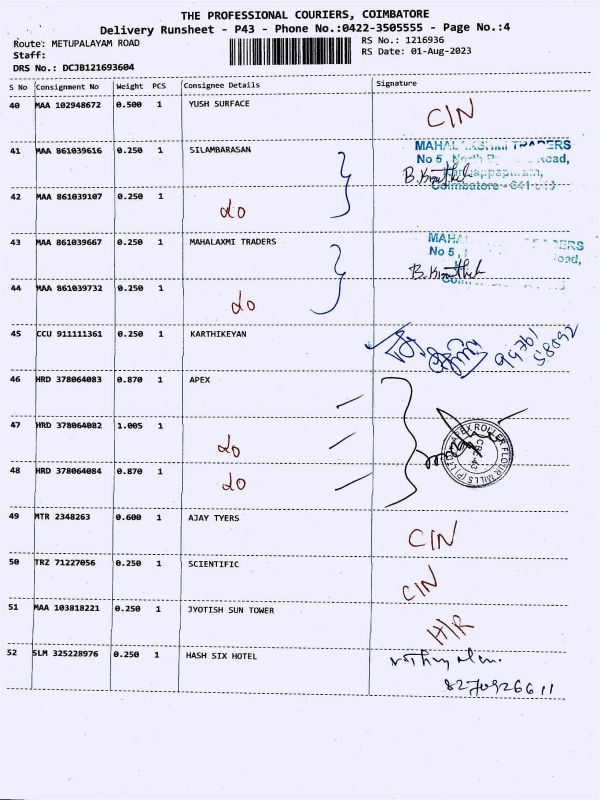 THE PROFESSIONAL COURIERS, COIMBATORE
Delivery Runsheet - P43 - Phone No.:0422-3505555 - Page No.:4
Route: METUPALAYAM ROAD
RS No.: 1216936
Staff:
RS Date: 01-Aug-2023
DRS No.: DCJB121693604
S No Consignment No Weight PCS Consignee Details Signature
40 MAA 102948672 0.500 1 YUSH SURFACE
C/N
41 MAA 861039616 0.250 1 SILAMBARASAN
MAHALAKSHMI TRADERS
No 5, North Road,
Coimbatore - 641
42 MAA 861039107 0.250 1
do
43 MAA 861039667 0.250 1 MAHALAXMI TRADERS
TRADERS
No 5,
Road,
44 MAA 861039732 0.250 1
do
45 CCU 911111361 0.250 1 KARTHIKEYAN
99761
58092
46 HRD 378064083 0.870 1 APEX
47 HRD 378064082 1.005 1
do
APEX ROLLER FLOUR MILLS (P) LTD
CBE-43
48 HRD 378064084 0.870 1
do
49 MTR 2348263 0.600 1 AJAY TYERS
C/N
50 TRZ 71227056 0.250 1 SCIENTIFIC
C/N
51 MAA 103818221 0.250 1 JYOTISH SUN TOWER
H/R
52 SLM 325228976 0.250 1 HASH SIX HOTEL
8270926611